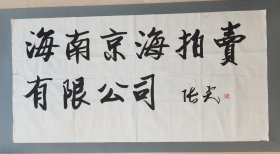 海南京海拍賣
有限公司 张光